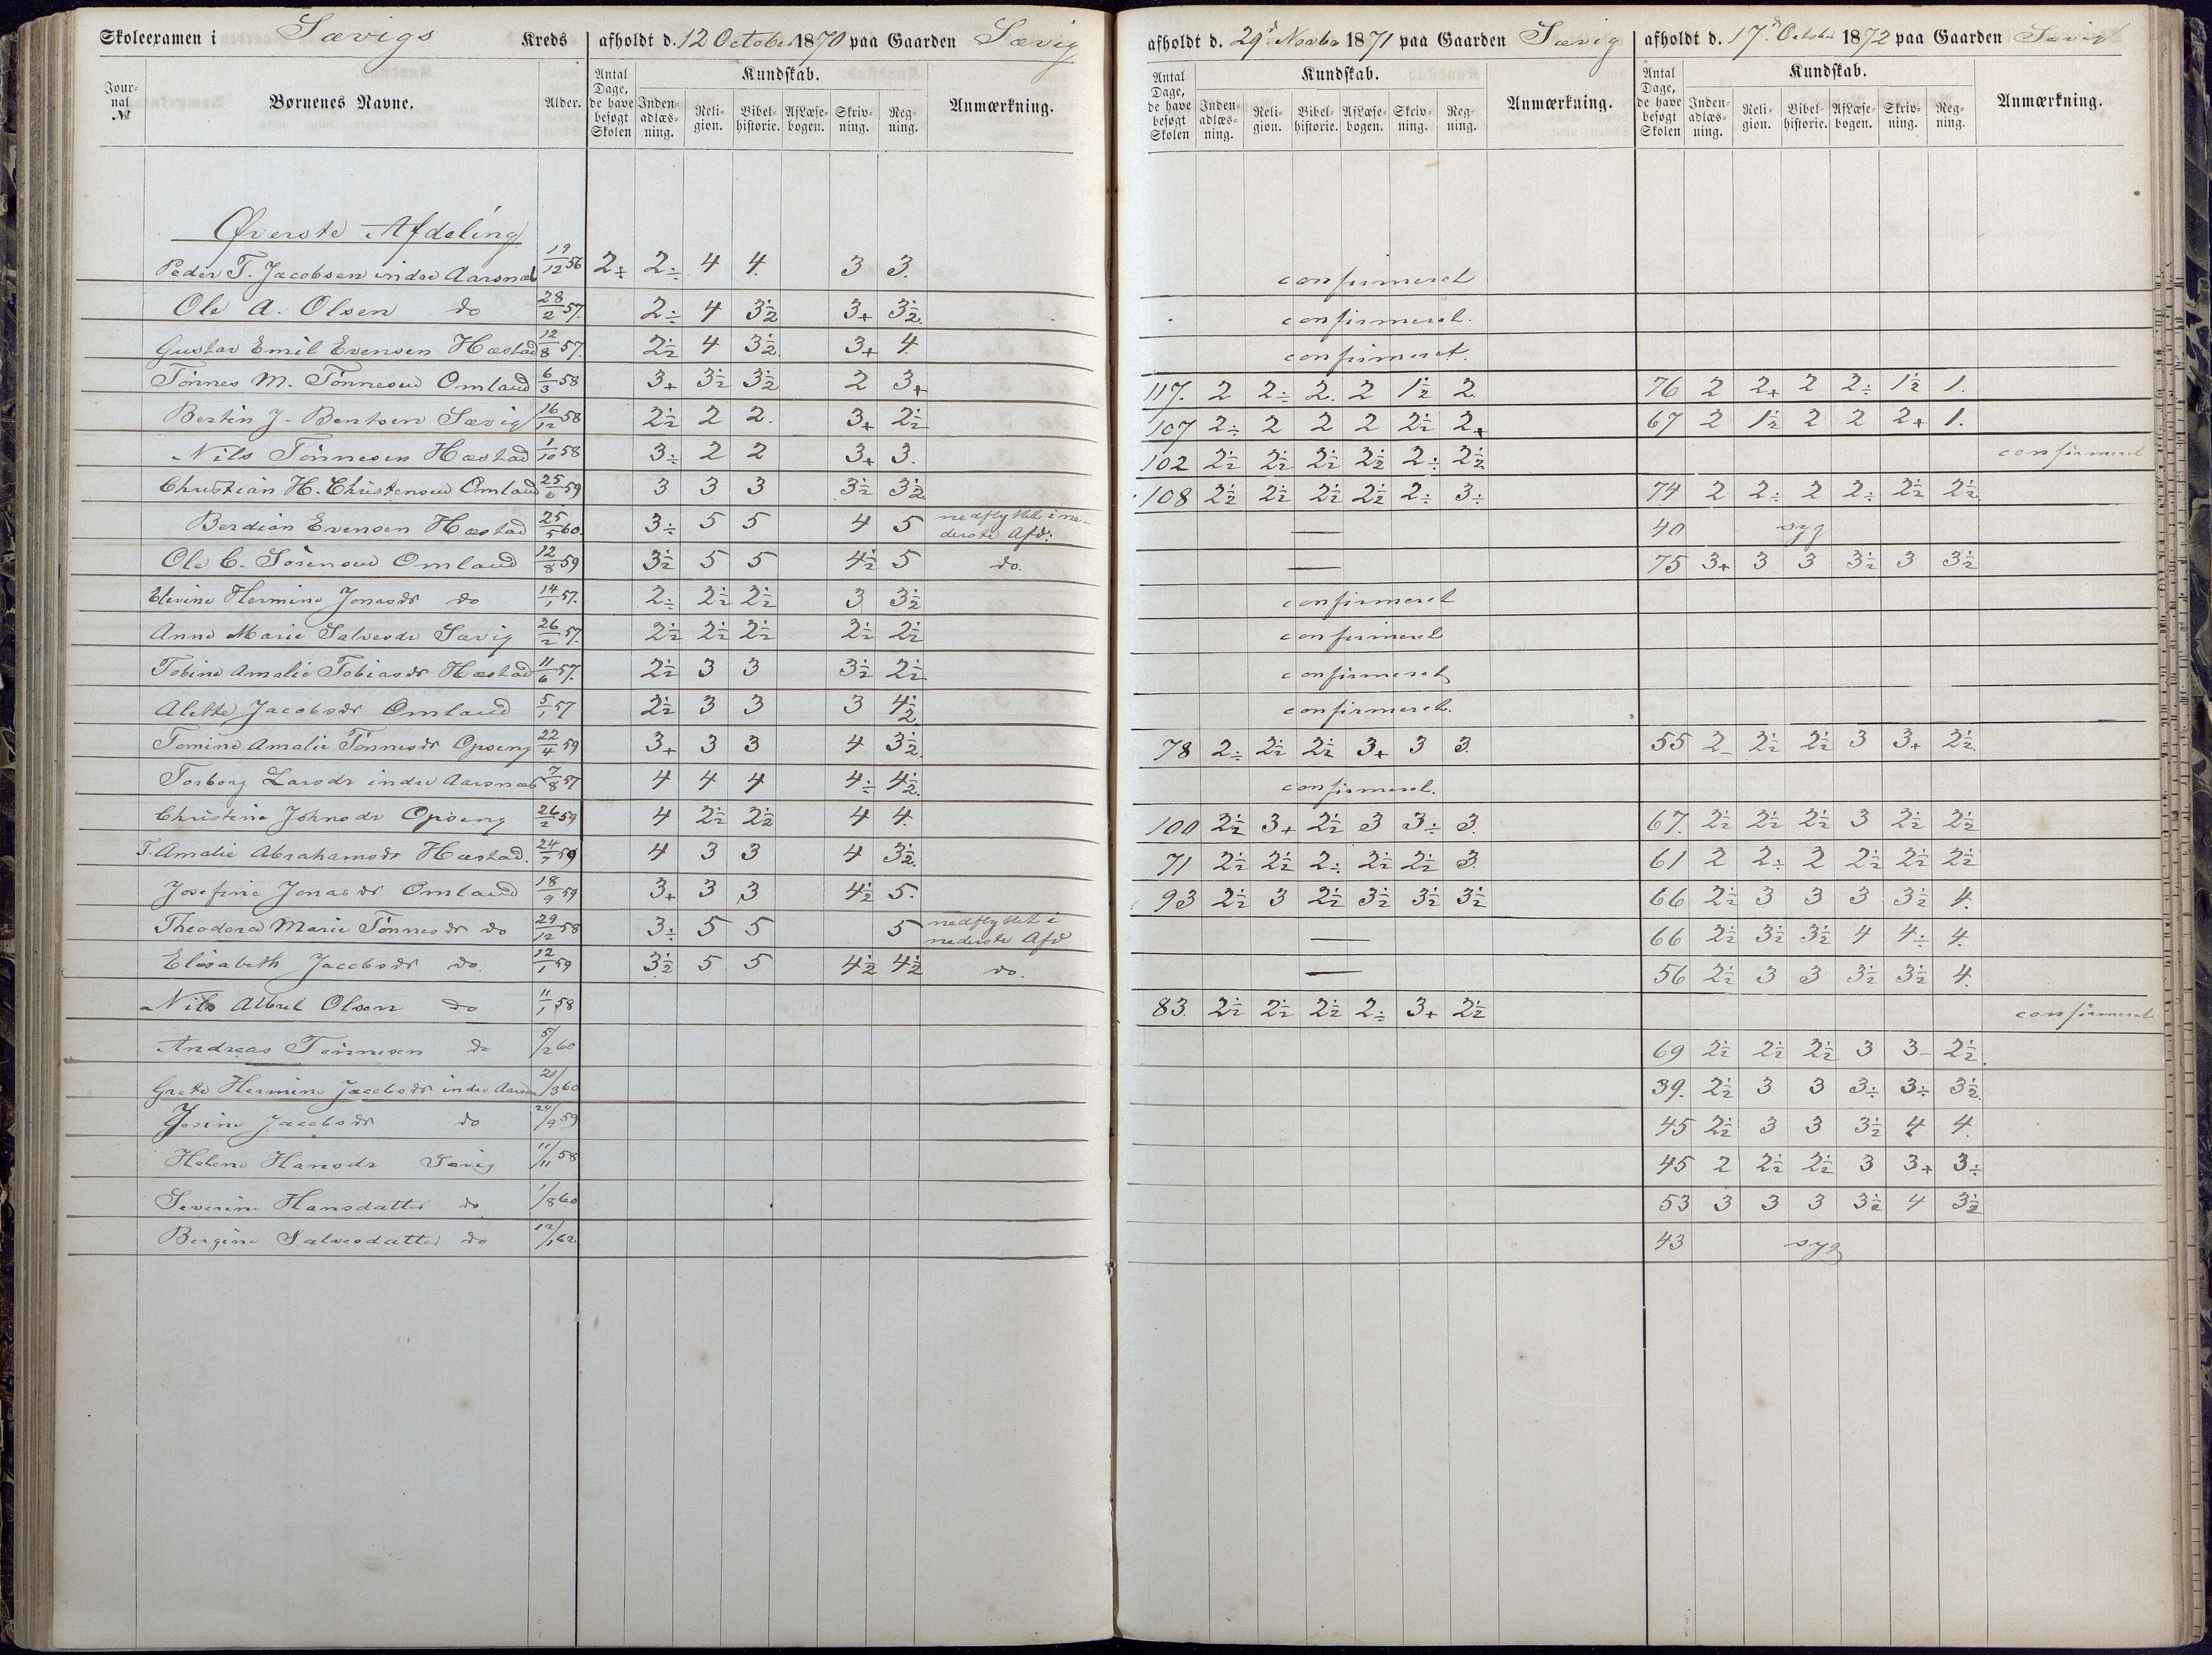 Skoleexamen i Sævigs Kreds afholdt d. 12 October 1870 paa Gaarden Sævig
Jour-nal № Børnenes Navne. Alder. Antal Dage, de have besøgt Skolen Kundskab. Inden-adlæs-ning. Reli-gion. Bibel-historie. AfLæse-bogen. Skriv-ning. Reg-ning. Anmærkning.
afholdt d. 29d Novbr 1871 paa Gaarden Sævig
Antal Dage, de have besøgt Skolen Kundskab. Inden-adlæs-ning. Reli-gion. Bibel-historie. AfLæse-bogen. Skriv-ning. Reg-ning. Anmærkning.
afholdt d. 17d October 1872 paa Gaarden Sævig
Antal Dage, de have besøgt Skolen Kundskab. Inden-adlæs-ning. Reli-gion. Bibel-historie. AfLæse-bogen. Skriv-ning. Reg-ning. Anmærkning.
Øverste Afdeling
Peder T. Jacobsen indre Aarsnæs 19/12 56 2+ 2÷ 4 4. 3 3. confirmeret
Ole A. Olsen do 28/2 57. 2÷ 4 3½ 3+ 3½. confirmeret.
Gustav Emil Evensen Hæstad 12/8 57. 2½ 4 3½. 3+ 4. confirmeret.
Tönnes M. Tönnesen Omland 6/3 58 3+ 3½ 3½ 2 3+ 117. 2 2÷ 2. 2 1½ 2. 76 2 2+ 2 2÷ 1½ 1.
Bertin J. Bentsen Sævig 16/12 58 2½ 2 2. 3+ 2½ 107 2÷ 2 2 2 2½ 2+ 67 2 1½ 2 2 2+ 1.
Nils Tönnesen Hæstad 1/10 58 3÷ 2 2 3+ 3. 102 2½ 2½ 2½ 2½ 2÷ 2½. confirmeret
Christian H. Christensen Omland 25/6 59 3 3 3 3½ 3½. 108 2½ 2½ 2½ 2½ 2÷ 3÷ 74 2 2÷ 2 2÷ 2½ 2½.
Berdian Evensen Hæstad 25/5 60. 3÷ 5 5 4 5 nedflyttet i ne-derste Afd: — 40 syg
Ole C. Sörensen Omland 12/8 59 3½ 5 5 4½ 5 do. — 75 3+ 3 3 3½ 3 3½
Elevine Hermine Jonasdr do 14/1 57. 2÷ 2½ 2½ 3 3½ confirmeret
Anne Marie Salvesdr Sævig 26/2 57. 2½ 2½ 2½ 2½ 2½ confirmeret
Tobine Amalie Tobiasdr Hæstad 11/6 57. 2½ 3 3 3½ 2½ confirmeret
Alette Jacobsdr Omland 5/1 57 2½ 3 3 3 4½ confirmeret.
Tomine Amalie Tönnesdr Opseng 22/4 59 3+ 3 3 4 3½. 78 2÷ 2½ 2½ 3+ 3 3. 55 2- 2½ 2½ 3 3+ 2½.
Torborg Larsdr indre Aarsnæs 7/8 57 4 4 4 4÷ 4½. confirmeret.
Christine Johnsdr Opseng 26/2 59 4 2½ 2½ 4 4. 100 2½ 3+ 2½ 3 3÷ 3. 67. 2½ 2½ 2½ 3 2½ 2½
T. Amalie Abrahamsdr Hæstad. 24/7 59 4 3 3 4 3½. 71 2½ 2½ 2÷ 2½ 2½ 3. 61 2 2÷ 2 2½ 2½ 2½
Josefine Jonasdr Omland 18/9 59 3+ 3 3 4½ 5. 93 2½ 3 2½ 3½ 3½ 3½ 66 2½ 3 3 3 3½ 4.
Theodora Marie Tönnesdr do 29/12 58 3÷ 5 5 5 nedflyttet i nederste Afd — 66 2½ 3½ 3½ 4 4÷ 4.
Elisabeth Jacobsdr do. 12/1 59 3½ 5 5 4½ 4½ do. — 56 2½ 3 3 3½ 3½ 4.
Nils Albret Olsen do 11/1 58 83. 2½ 2½ 2½ 2÷ 3+ 2½ confirmeret
Andreas Tönnesen do 5/2 60 69 2½ 2½ 2½ 3 3- 2½.
Grete Hermine Jacobsdr indre Aarsnæs 21/3 60 39. 2½ 3 3 3÷ 3÷ 3½.
Josine Jacobsdr do 24/9 59 45 2½ 3 3 3½ 4 4.
Helene Hansdr Sævig 11/11 58 45 2 2½ 2½ 3 3+ 3÷
Severine Hansdatter do 1/8 60 53 3 3 3 3½ 4 3½
Bergine Salvesdatter do 12/1 62 43 syg